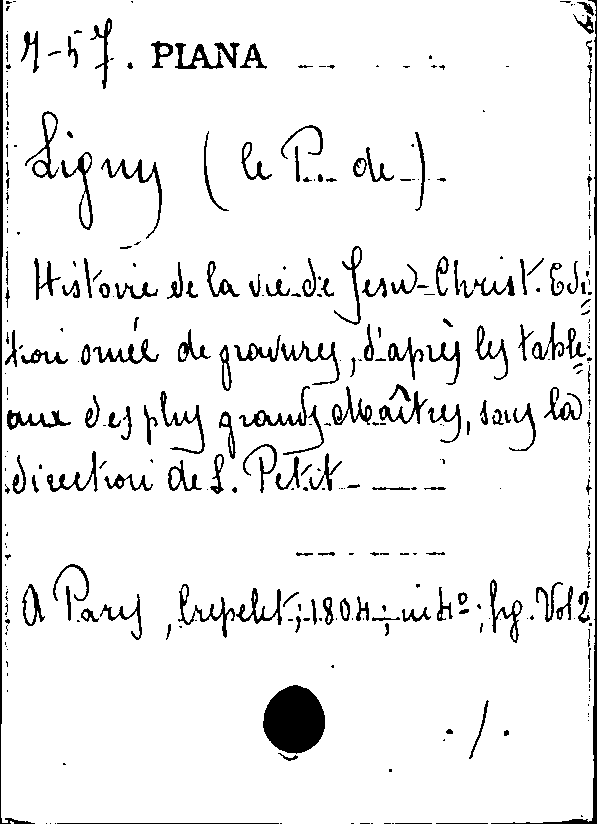 4-57. PIANA
Ligny (le P. de)
Histoire de la vie de Jesus-Christ. Edi=
tion ornée de gravures, d'après les table=
aux des plus grands Maîtres, sous la
direction de S. Petit
A Paris, Crepelet; 1804; in 4º; fig. Vol 2
./.